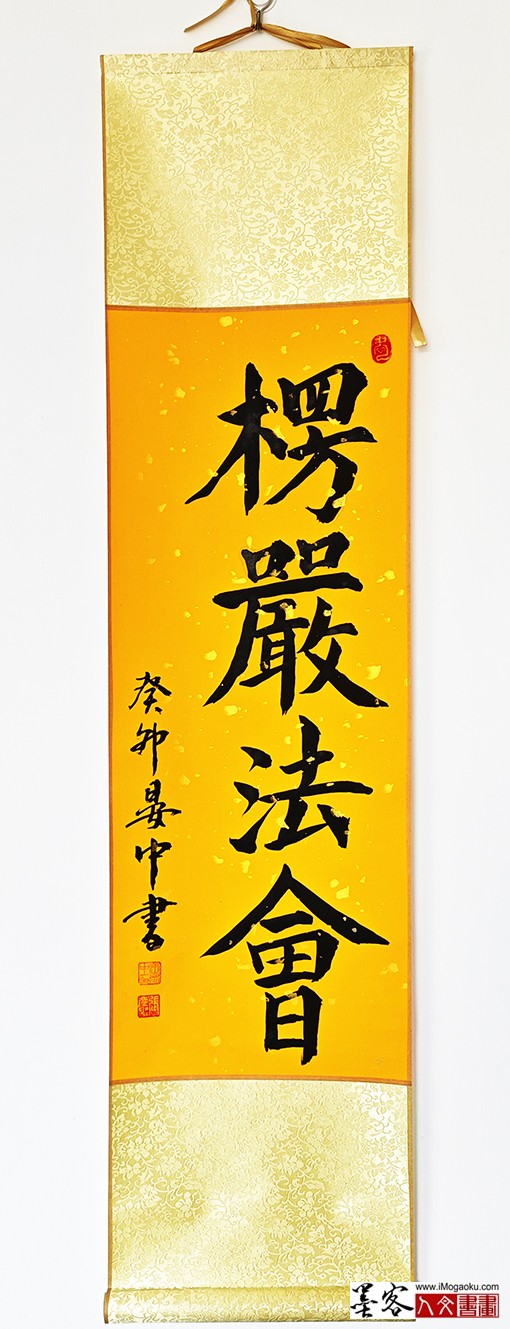 楞嚴法會
癸卯晏中書
www.iMogaoku.com
墨客
人文書畫